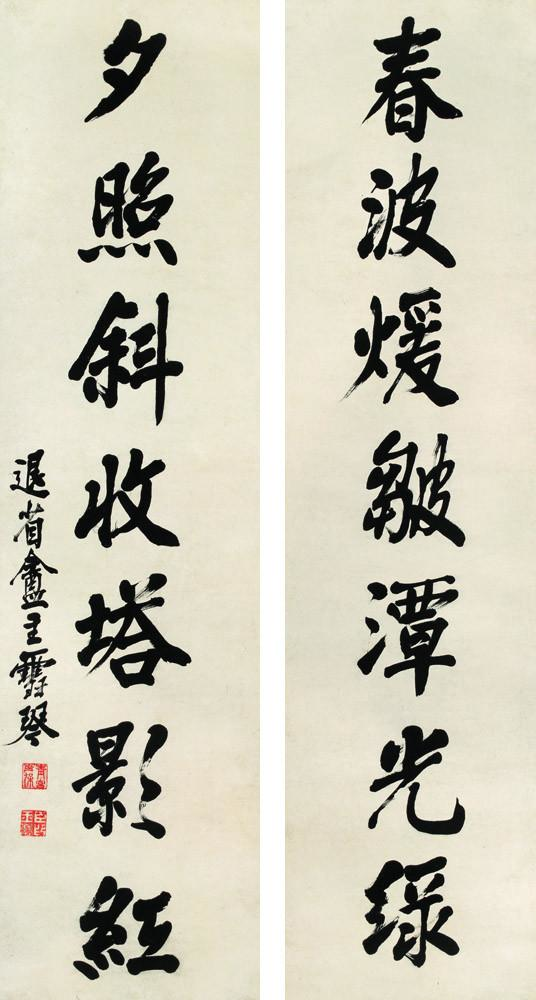 春波煖皺潭光綠
夕照斜收塔影紅
退省盦主雪琴